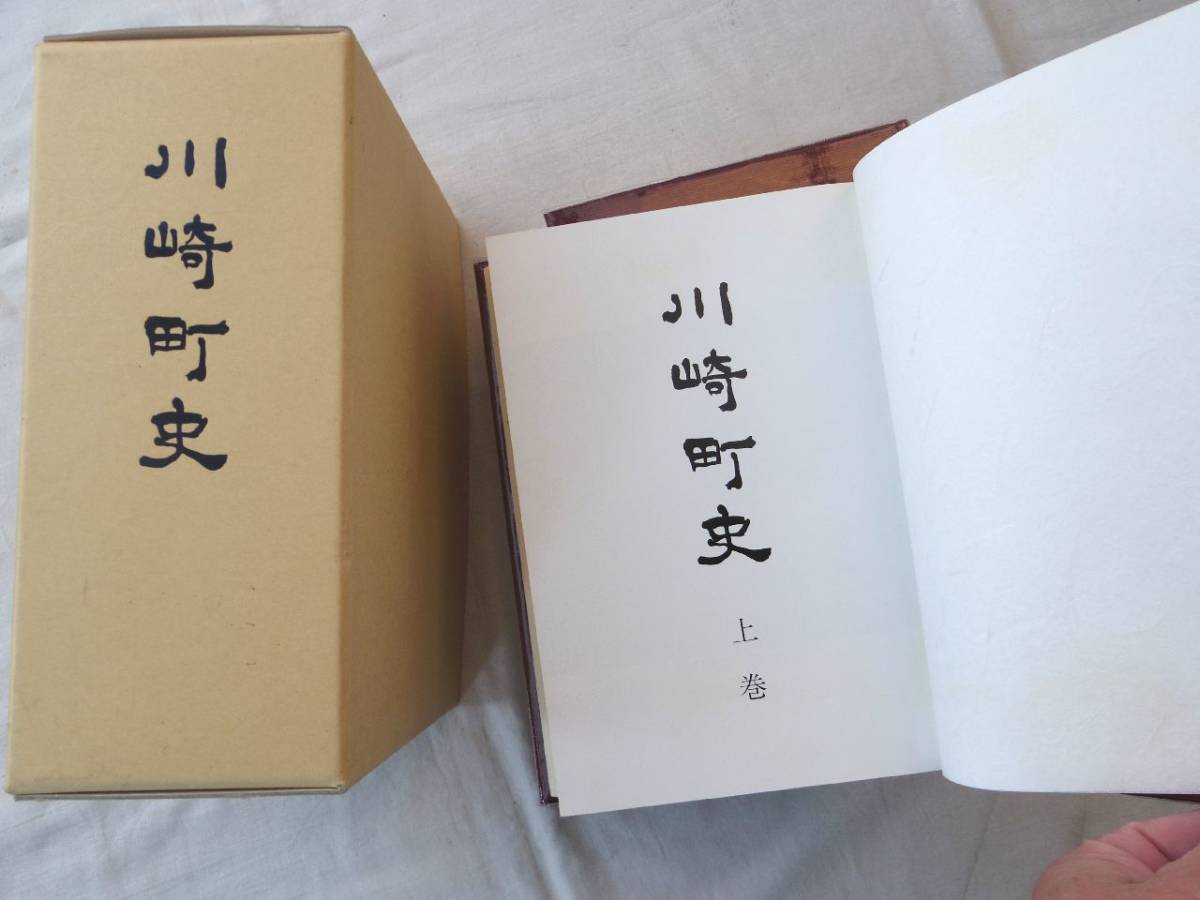 川崎町史
川崎町史
上巻